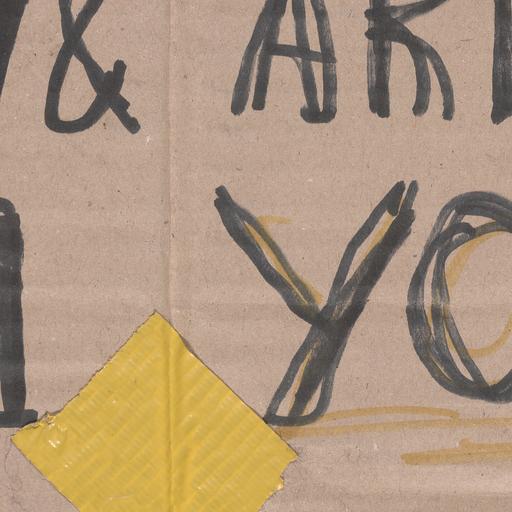 & AR
YO